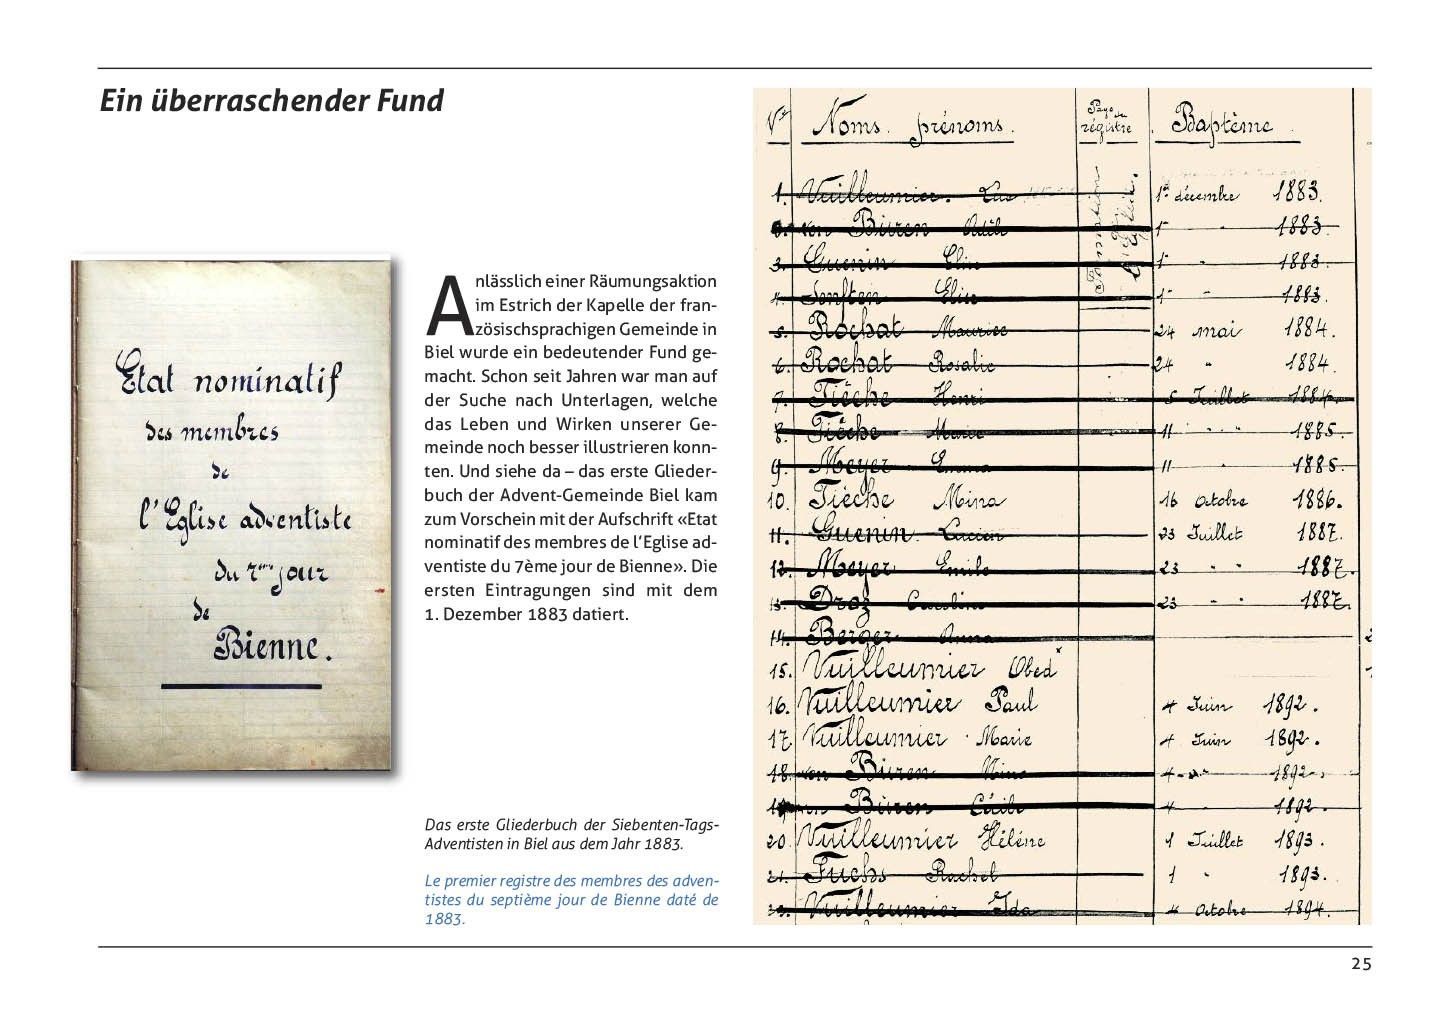 Ein überraschender Fund
Etat nominatif
des membres
de
l'Eglise adventiste
du 7ème jour
de
Bienne.
Anlässlich einer Räumungsaktion
im Estrich der Kapelle der fran-
zösischsprachigen Gemeinde in
Biel wurde ein bedeutender Fund ge-
macht. Schon seit Jahren war man auf
der Suche nach Unterlagen, welche
das Leben und Wirken unserer Ge-
meinde noch besser illustrieren konn-
ten. Und siehe da – das erste Glieder-
buch der Advent-Gemeinde Biel kam
zum Vorschein mit der Aufschrift «Etat
nominatif des membres de l'Eglise ad-
ventiste du 7ème jour de Bienne». Die
ersten Eintragungen sind mit dem
1. Dezember 1883 datiert.
Das erste Gliederbuch der Siebenten-Tags-
Adventisten in Biel aus dem Jahr 1883.
Le premier registre des membres des adven-
tistes du septième jour de Bienne daté de
1883.
Noms. prénoms. Page du régistre Baptême
1. Vuilleumier. 1er décembre 1883.
von Büren Adèle 1" 1883.
3. Guenin Elise 1" " 1883.
4. Elise 1" " 1883.
5. Rochat Maurice 24 mai 1884.
6. Rochat Rosalie 24 " 1884.
7. Tièche Henri 5 Juillet 1884.
8. Tièche Marie 11 " " 1885.
9. Meyer Emma 11 " 1885.
10. Tièche Mina 16 Octobre 1886.
11. Guenin Lucien 23 Juillet 1887.
12. Meyer Emile 23 " " 1887.
13. Droz Caroline 23 " " 1887.
14. Berger Anna
15. Vuilleumier Obed
16. Vuilleumier Paul 4 Juin 1892.
17. Vuilleumier Marie 4 Juin 1892.
18. von Büren 4 " " 1892.
Büren Cécile 4 " 1892.
20. Vuilleumier Hélène 1 Juillet 1893.
21. Fuchs Rachel 1 " 1893.
Vuilleumier Ida 4 Octobre 1894.
25